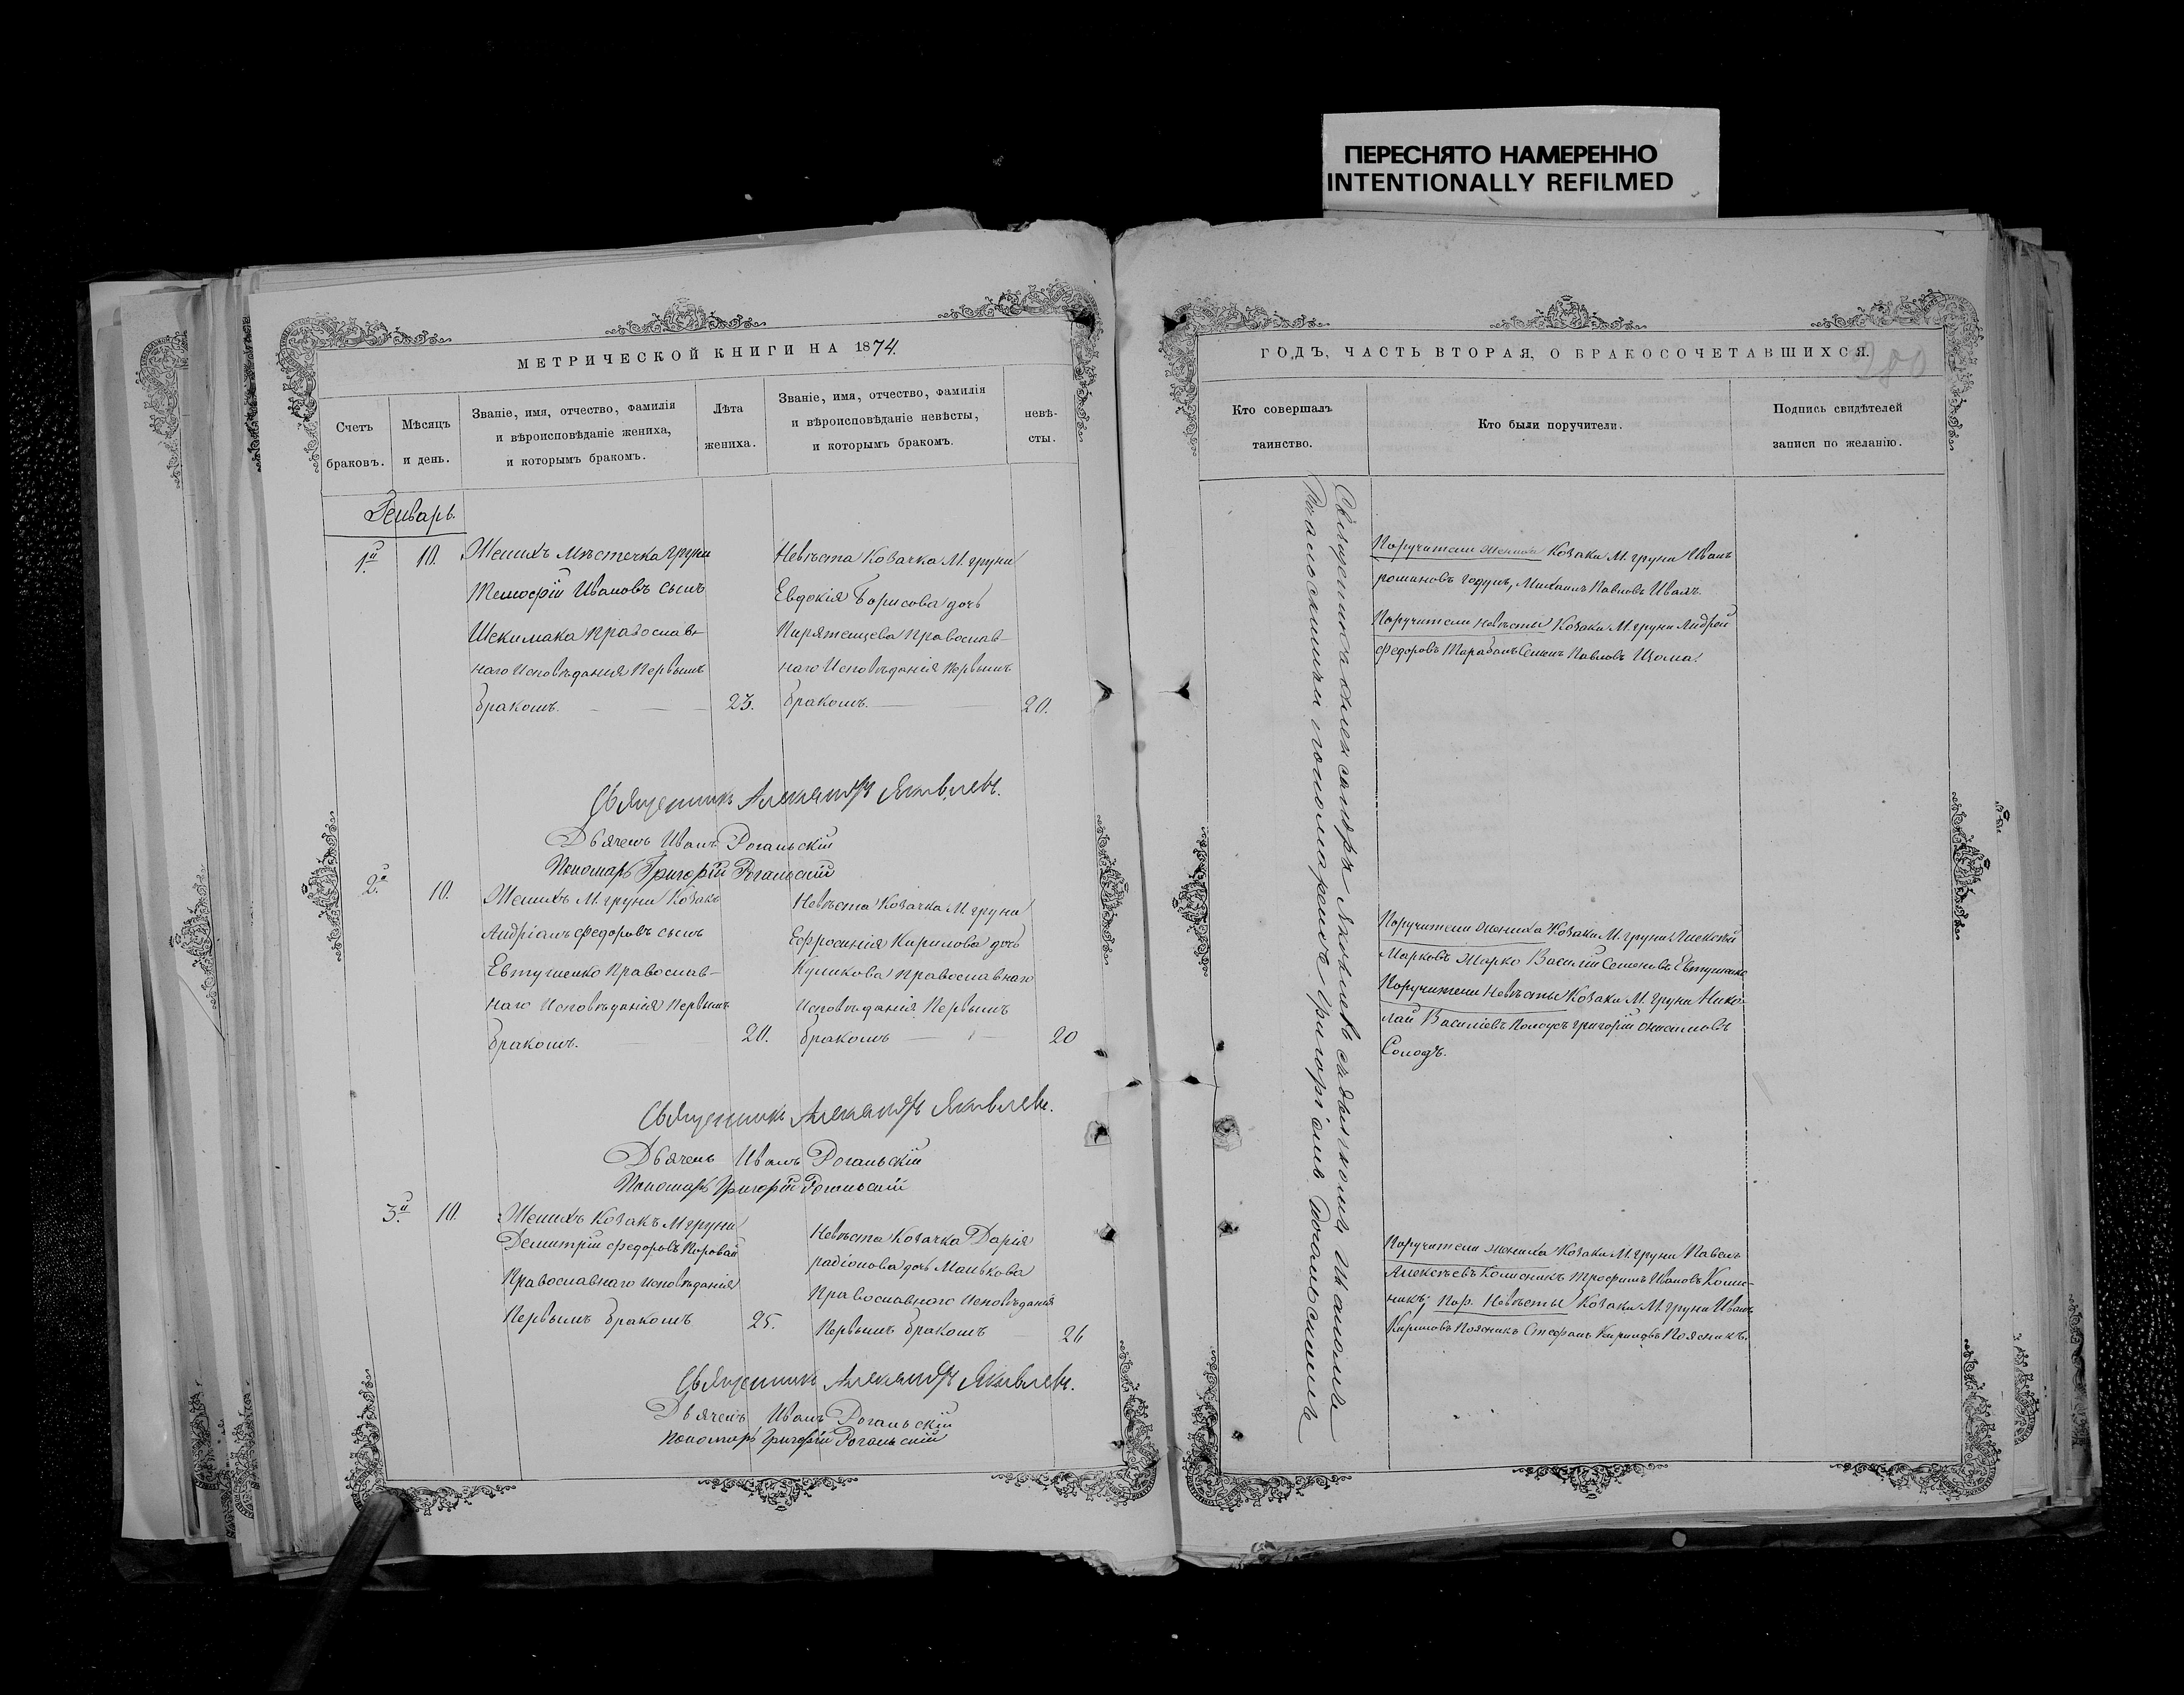 ПЕРЕСНЯТО НАМЕРЕННО
INTENTIONALLY REFILMED
МЕТРИЧЕСКОЙ КНИГИ НА 1874.
Счетъ
браковъ.
Мѣсяцъ
и день.
Званіе, имя, отчество, фамилія
и вѣроисповѣданіе жениха,
и которымъ бракомъ.
Лѣта
жениха.
Званіе, имя, отчество, фамилія
и вѣроисповѣданіе невѣсты,
и которымъ бракомъ.
невѣ-
сты.
Генварь.
1й
10.
Женихъ мѣстечка груни
Тимофій Ивановъ сынъ
Шекимака Православ-
наго Исповѣданія Первымъ
бракомъ.
23.
Невѣста Козачка М. груни
Евдокія Борисова дочь
Пирятенцева Православ-
наго Исповѣданія Первымъ
бракомъ.
20.
Священникъ Александръ Яковлевъ.
Дьячекъ Иванъ Рогальскій
Пономарь Григорій Рогальскій
2й
10.
Женихъ М. груни Козакъ
Андріанъ Федоровъ сынъ
Евтушенко Православ-
наго Исповѣданія Первымъ
бракомъ.
20.
Невѣста Козачка М. груни
Ефросинія Кирилова дочь
Куликова Православнаго
Исповѣданія Первымъ
бракомъ
20
Священникъ Александръ Яковлевъ.
Дьячекъ Иванъ Рогальскій
Пономарь Григорій Рогальскій
3й
10.
Женихъ Козакъ М груни
Демитрій Федоровъ Поровай
Православнаго исповѣданія
Первымъ бракомъ
25.
Невѣста Козачка Дарія
радіонова дочь Манькова
Православнаго Исповѣданія
Первымъ бракомъ
26
Священникъ Александръ Яковлевъ.
Дьячекъ Иванъ Рогальскій
Пономарь Григорій Рогальскій
ГОДЪ, ЧАСТЬ ВТОРАЯ, О БРАКОСОЧЕТАВШИХСЯ.
280
Кто совершалъ
таинство.
Кто были поручители.
Подпись свидѣтелей
записи по желанію.
Священникъ Александръ Яковлевъ съ дьячкомъ Иваномъ
Рогальскимъ и пономаремъ Григоріемъ Рогальскимъ
Поручители жениха Козаки М. груни Иванъ
романовъ годунъ, Михаилъ Павловъ Иваяъ.
Поручители невѣсты Козаки М. груни Андрей
Федоровъ Тарабанъ Семенъ Павловъ Шома.
Поручители жениха Козаки М. груни Алексѣй
Марковъ Марко Василій Семеновъ Евтушенко
Поручители Невѣсты Козаки М. груни Нико-
лай Василіевъ Колоусъ григорій онисимовъ
Солодъ.
Поручители жениха Козаки М. груни Павелъ
Алексѣевъ Колисникъ Трофимъ Ивановъ Коли-
никъ; Пор. Невѣсты Козаки М. груни Иванъ
Кириловъ Поясникъ Стефанъ Кириловъ Поясникъ.